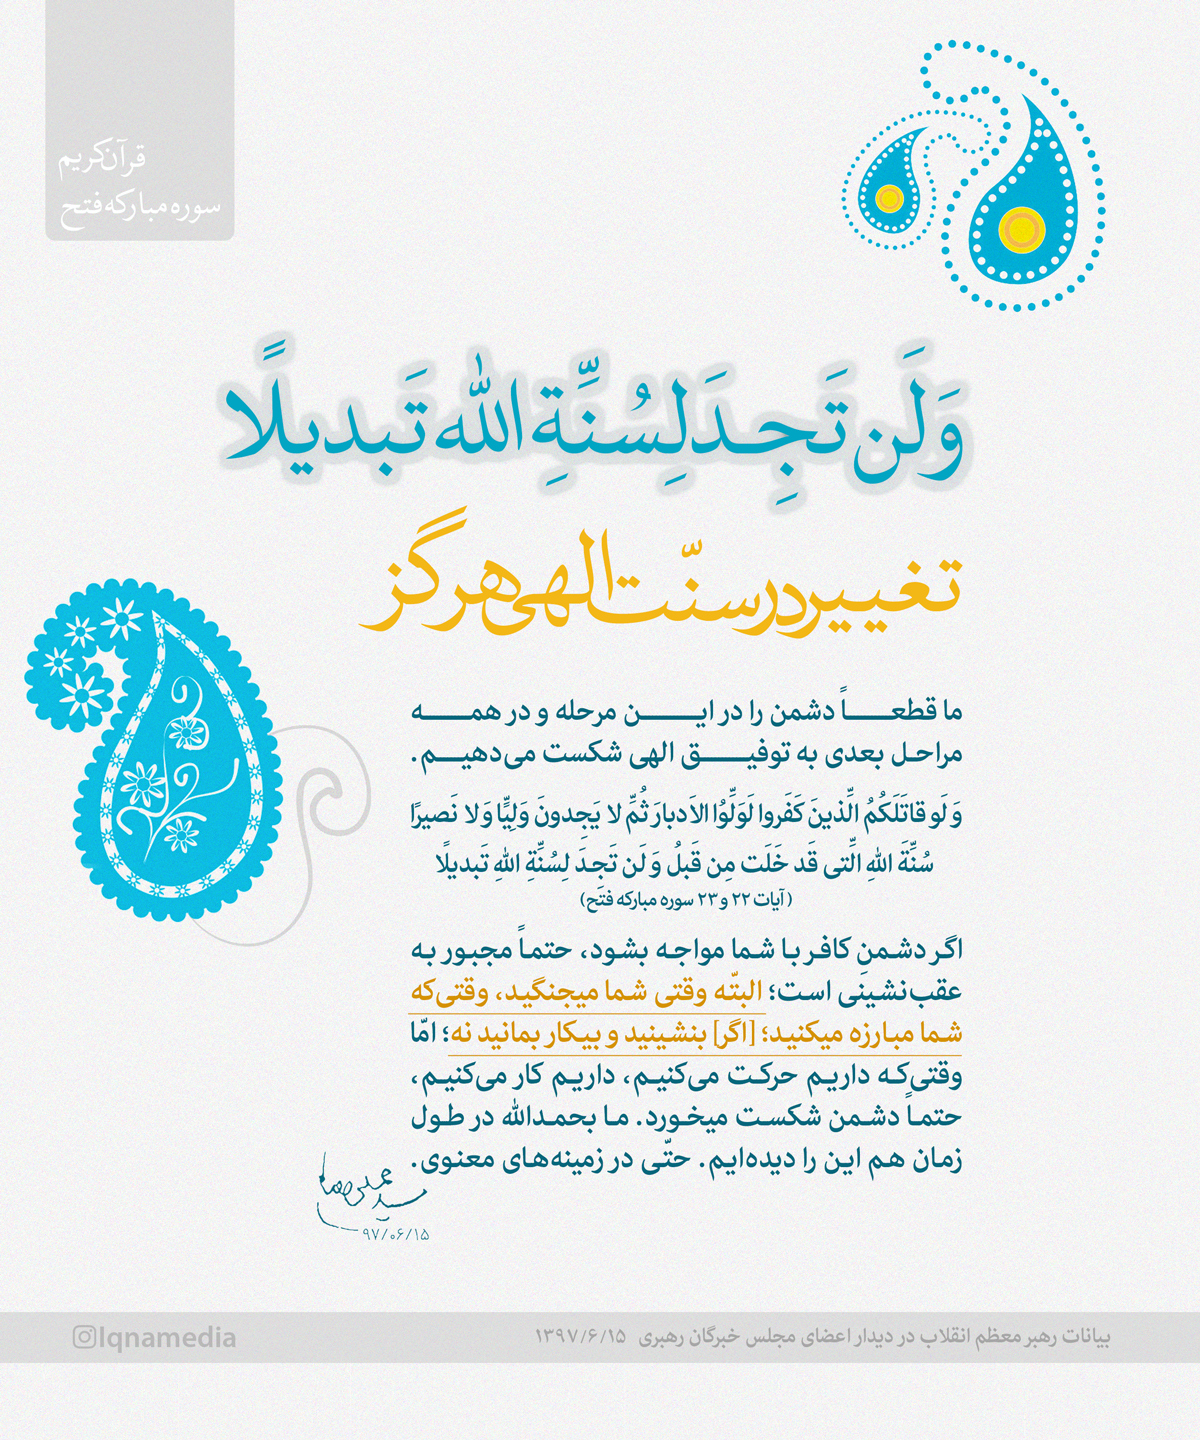 قرآن کریم
سوره مبارکه فتح
وَلَن تَجِدَ لِسُنَّةِ اللّٰه تَبدیلًا
تغییر در سنّت الهی هرگز
ما قطعـــاً دشمن را در ایـــن مرحله و در همـــه
مراحل بعدی به توفیـــق الهی شکست می‌دهیـــم.
وَ لَو قاتَلَکُمُ الَّذینَ کَفَروا لَوَلَّوُا الاَدبارَ ثُمَّ لا یَجِدونَ وَلِیًّا وَ لا نَصیرًا
سُنَّةَ اللهِ الَّتی قَد خَلَت مِن قَبلُ وَ لَن تَجِدَ لِسُنَّةِ اللهِ تَبدیلًا
(آیات ۲۲ و ۲۳ سوره مبارکه فتح)
اگر دشمنِ کافر با شما مواجه بشود، حتماً مجبور به
عقب‌نشینی است؛ البتّه وقتی شما میجنگید، وقتی‌که
شما مبارزه میکنید؛ [اگر] بنشینید و بیکار بمانید نه؛ امّا
وقتی‌که داریم حرکت می‌کنیم، داریم کار می‌کنیم،
حتماً دشمن شکست میخورد. ما بحمدالله در طول
زمان هم این را دیده‌ایم. حتّی در زمینه‌های معنوی.
۹۷/۰۶/۱۵
بیانات رهبر معظم انقلاب در دیدار اعضای مجلس خبرگان رهبری ۱۳۹۷/۶/۱۵
Iqnamedia